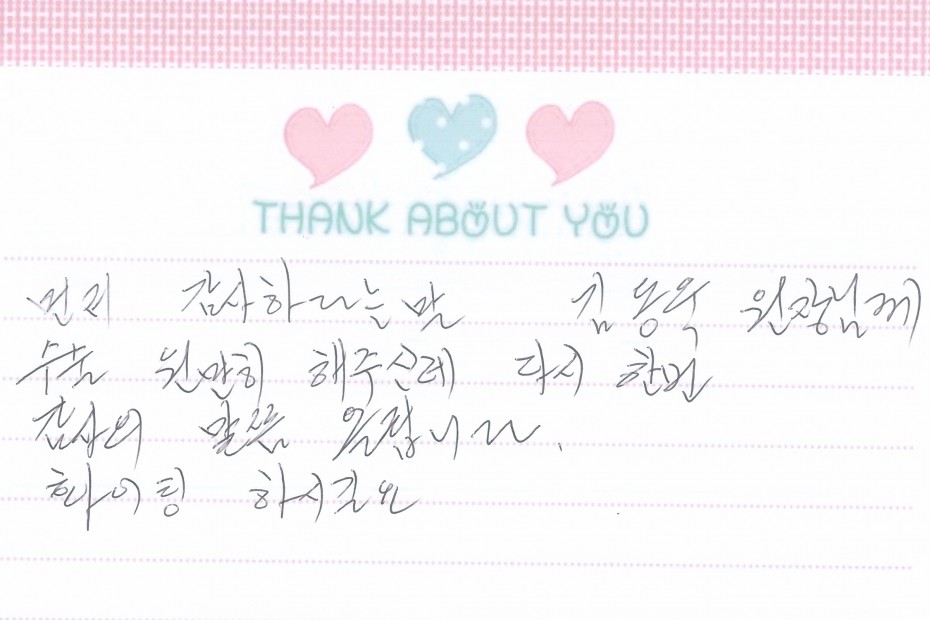 THANK ABOUT YOU
먼저 감사하다는 말 김동욱 원장님께
수술 원만히 해주신데 다시 한번
감사의 말씀 올립니다.
화이팅 하시길요